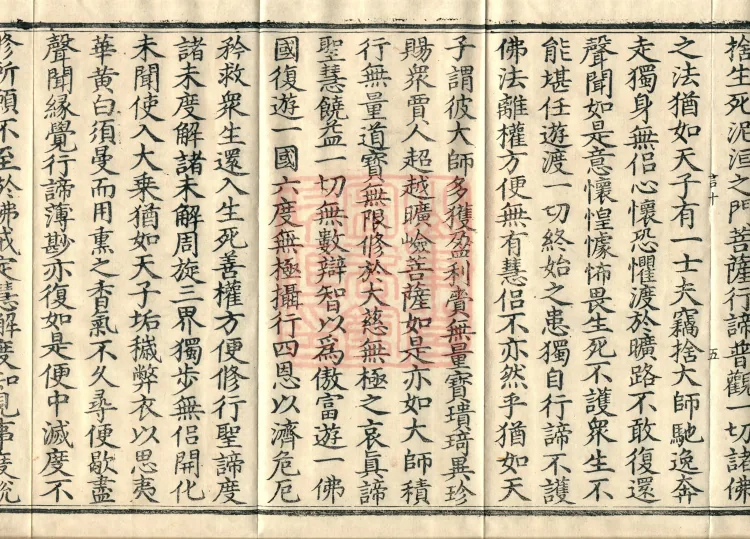 捨生死泥洹之門菩薩行諦普觀一切諸佛
之法猶如天子有一士夫竊捨大師馳逸奔
走獨身無侶心懷恐懼渡於曠路不敢復還
聲聞如是意懷惶懅怖畏生死不護衆生不
能堪任遊渡一切終始之患獨自行諦不護
佛法離權方便無有慧侶不亦然乎猶如天
子謂彼大師多獲盈利賷無量寶瓌琦異珍
賜衆賈人超越曠嶮菩薩如是亦如大師積
行無量道寶無限修於大慈無極之哀真諦
聖慧饒益一切無數辯智以為傲富遊一佛
國復遊一國六度無極攝行四恩以濟危厄
矜救衆生還入生死善權方便修行聖諦度
諸未度解諸未解周旋三界獨步無侶開化
未聞使入大乘猶如天子垢穢弊衣以思夷
華黃白須曼而用熏之香氣不久尋便歇盡
聲聞緣覺行諦薄尠亦復如是便中滅度不
修所願不至於佛戒定慧解度知見事度脫
言十
五